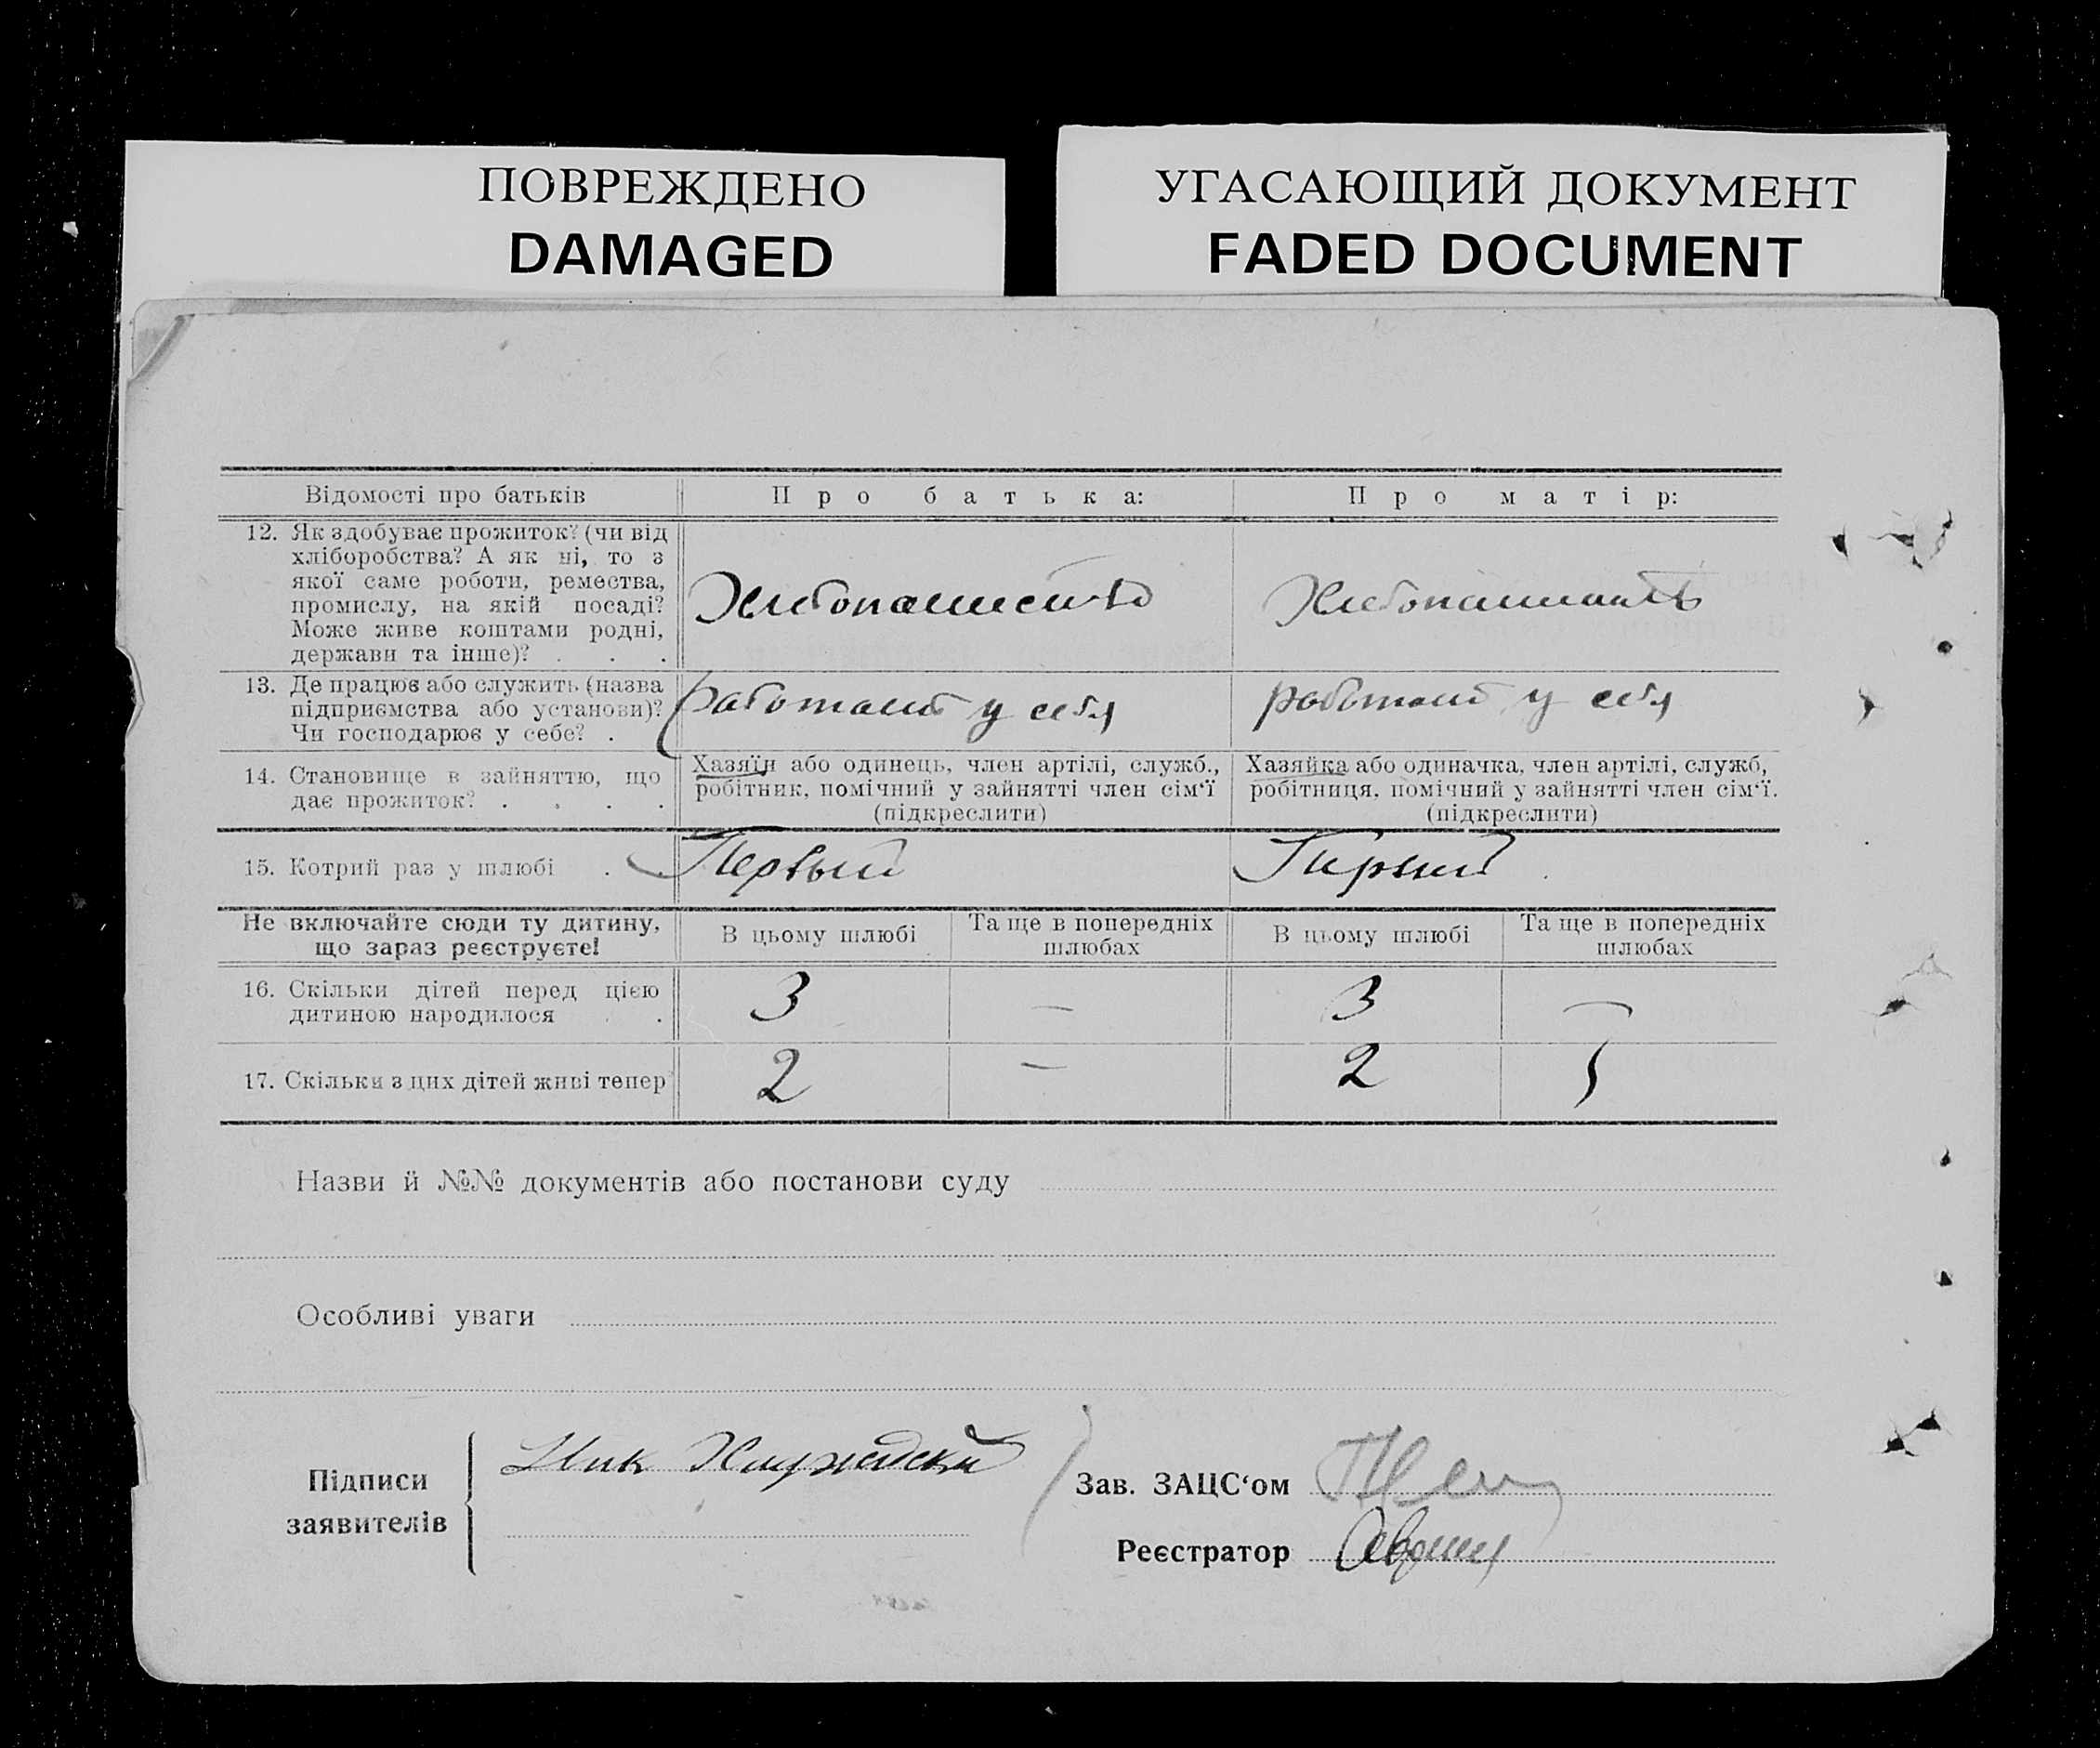 ПОВРЕЖДЕНО
DAMAGED
УГАСАЮЩИЙ ДОКУМЕНТ
FADED DOCUMENT
Відомості про батьків
Про батька:
Про матір:
12. Як здобуває прожиток? (чи від
хліборобства? А як ні, то з
якої саме роботи, ремества,
промислу, на якій посаді?
Може живе коштами родні,
держави та інше)? . . .
Хлебопашество
13. Де працює або служить (назва
підприємства або установи)?
Чи господарює у себе? .
работает у себя
работает у себя
14. Становище в зайняттю, що
дає прожиток? . . . .
Хазяїн або одинець, член артілі, служб.,
робітник, помічний у зайнятті член сім'ї
(підкреслити)
Хазяйка або одиначка, член артілі, служб,
робітниця, помічний у зайнятті член сім'ї.
(підкреслити)
15. Котрий раз у шлюбі . .
Первый
Первый
Не включайте сюди ту дитину,
що зараз реєструєте!
В цьому шлюбі
Та ще в попередніх
шлюбах
В цьому шлюбі
Та ще в попередніх
шлюбах
16. Скільки дітей перед цією
дитиною народилося . .
3
—
3
—
17. Скільки з цих дітей живі тепер
2
—
2
Назви й №№ документів або постанови суду
Особливі уваги
Підписи
заявителів
Ник
Зав. ЗАЦС'ом
Реєстратор